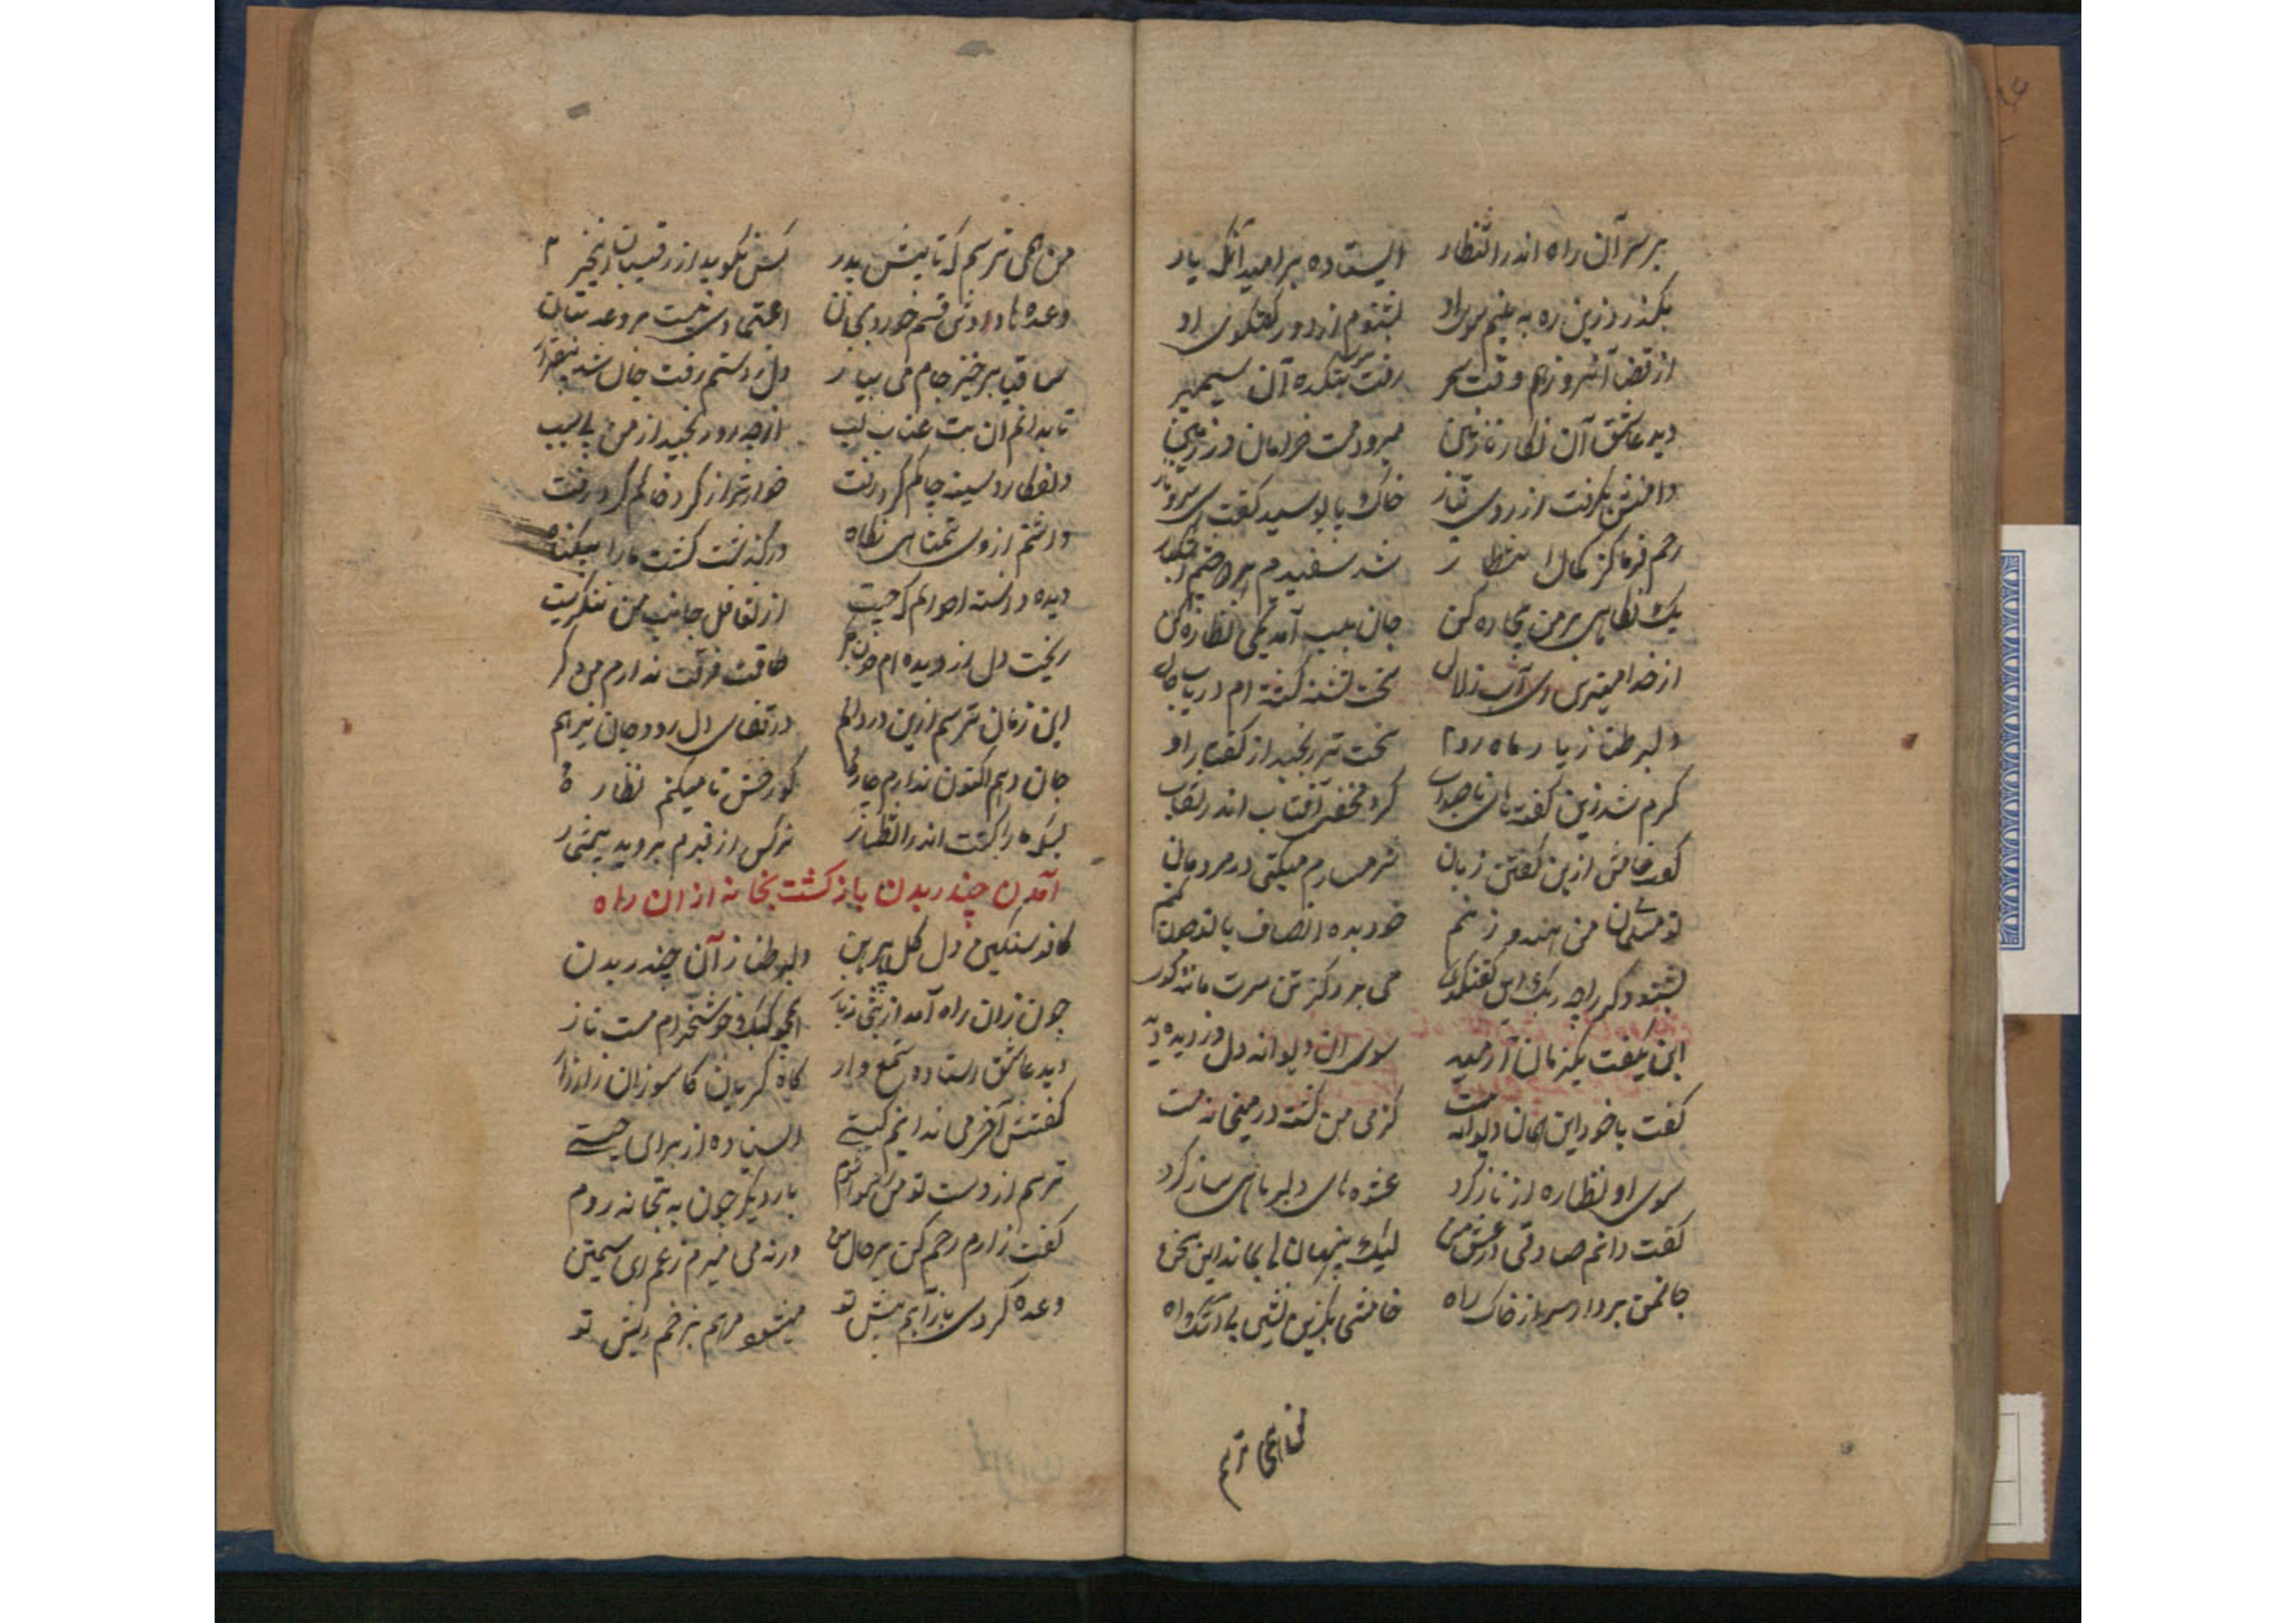 بر سر آن راه اندر انتظار ایستاده بر امید آنکه یار
بگذرد زین ره به بینم سوی او بشنوم از دور گفتگوی او
از قضا آنروز هم وقت سحر رفت بتکده آن سیمبر
دید عاشق آن نگار نازنین میرود مست خرامان
دامنش بگرفت از روی نیاز خاک پا بوسید گفت ای سرو ناز
رحم فرما کز کمال انتظار شد سفیدم هر دو چشم اشکبار
یک نگاهی بر من بیچاره کن جان بلب آمد یکی نظاره کن
از خدا می ترس ای آب زلال سخت تشنه گشته ام دریاب حال
دلبر طناز یار ماه رو سخت تر رنجید از گفتار او
گرم شد زین گفته های ناصواب کرد مخفی آفتاب اندر نقاب
گفت خامش ازین گفتن زبان شرمسارم میکنی در مردمان
تو مسلمان من هندو زنم خود بده انصاف با تو چون کنم
بشنود گر راجه رنگ این گفتگوی می برد کز تن سرت مانند گوی
این بگفت یکزمان آرمید سوی ان دیوانه دل دزدیده دید
گفت با خود این جوان دیوانه است کز می من گشته در میخانه مست
سوی او نظاره از ناز کرد عشوه های دلبرهای ساز کرد
گفت دانم صادقی در عشق من لیک پنهان بماند این سخن
جانمن بردار سر از خاک راه خامشی بگزین
من همی ترسم
من همی ترسم که تا پیش پدر کس نگوید از رقیبان این خبر
وعده ها دادش قسم خورد بجان اعتمادی نیست بر وعد بتان
ساقیا برخیز جام می بیار دل ز دستم رفت جان شد بیقرار
تا بدانم ان بت عناب لب از چه رو رنجید از من بی سبب
دلفکار و سینه چاکم کرد رفت خوارتر از گرد خاکم کرد رفت
داشتم از وی تمنای نگاه در گذشت کشت ما را بیگناه
دیده دانسته احوالم که چیست از تغافل جانب من ننگریست
ریخت دل از دیده ام خون جگر طاقت فرقت ندارم من دگر
این زمان ترسم ازین درد دلم در قفای دل رود جان نیز هم
جان دهم اکنون ندارم چاره گور خش تا میکنم نظاره
بسکه را کشت اندر انتظار نرگس از قبرم بروید
آمدن چندر بدن باز گشت بخانه از ان راه
کافر سنگین دل گل پیرهن دلبر طناز آن چندر بدن
چون زان راه آمد از همچو کبک خوشخرام مست ناز
دید عاشق استاده شمع وار گاه گریان گاه سوزان زار زار
گفتش آخر می ندانم کیستی ایستاده از برای چیستی
ترسم از دست تو من رسوا شوم بار دیگر چون به بتخانه روم
گفت زارم رحم کن بر حال من ورنه می میرم ز غم ای سیمتن
وعده کردی باز آیم پیش تو میشوم مرهم بزخم ریش تو